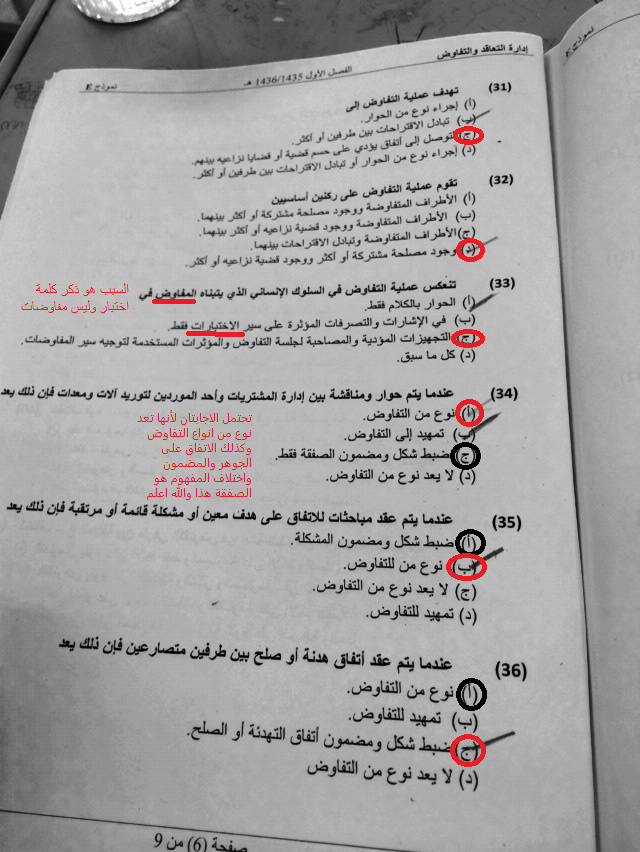 إدارة التعاقد والتفاوض
الفصل الأول 1436/1435 هـ
نموذج E
(31) تهدف عملية التفاوض إلى
(أ) إجراء نوع من الحوار.
(ب) تبادل الاقتراحات بين طرفين أو أكثر.
(ج) التوصل إلى أتفاق يؤدي على حسم قضية أو قضايا نزاعيه بينهم.
(د) إجراء نوع من الحوار أو تبادل الاقتراحات بين طرفين أو أكثر.
(32) تقوم عملية التفاوض على ركنين أساسيين
(أ) الأطراف المتفاوضة ووجود مصلحة مشتركة أو أكثر بينهما.
(ب) الأطراف المتفاوضة ووجود قضية نزاعيه أو أكثر بينهما.
(ج) الأطراف المتفاوضة وتبادل الاقتراحات بينهما.
(د) وجود مصلحة مشتركة أو أكثر ووجود قضية نزاعيه أو أكثر.
(33) تنعكس عملية التفاوض في السلوك الإنساني الذي يتبناه المفاوض في
(أ) الحوار بالكلام فقط.
(ب) في الإشارات والتصرفات المؤثرة على سير الاختيارات فقط.
(ج) التجهيزات المؤدية والمصاحبة لجلسة التفاوض والمؤثرات المستخدمة لتوجيه سير المفاوضات.
(د) كل ما سبق.
السبب هو ذكر كلمة
اختبار وليس مفاوضات
(34) عندما يتم حوار ومناقشة بين إدارة المشتريات وأحد الموردين لتوريد آلات ومعدات فإن ذلك يعد
(أ) نوع من التفاوض.
(ب) تمهيد إلى التفاوض.
(ج) ضبط شكل ومضمون الصفقة فقط.
(د) لا يعد نوع من التفاوض.
تحتمل الاجابتان لأنها تعد
نوع من انواع التفاوض
وكذلك الاتفاق على
الجوهر والمضمون
واختلاف المفهوم هو
الصفقة هذا والله اعلم
(35) عندما يتم عقد مباحثات للاتفاق على هدف معين أو مشكلة قائمة أو مرتقبة فإن ذلك يعد
(أ) ضبط شكل ومضمون المشكلة.
(ب) نوع من للتفاوض.
(ج) لا يعد نوع من التفاوض.
(د) تمهيد للتفاوض.
(36) عندما يتم عقد أتفاق هدنة أو صلح بين طرفين متصارعين فإن ذلك يعد
(أ) نوع من التفاوض.
(ب) تمهيد للتفاوض.
(ج) ضبط شكل ومضمون أتفاق التهدنة أو الصلح.
(د) لا يعد نوع من التفاوض
صفحة (6) من 9